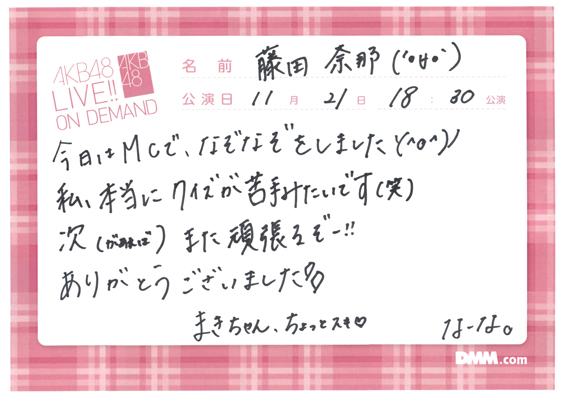 AKB48
LIVE!!
ON DEMAND
AKB
48
名前 藤田 奈那 (´•ㅂ•`)
公演日 11月 21日 18:30 公演
今日はMCで、なぞなぞをしましたヽ(^o^)ノ
私、本当にクイズが苦手みたいです(笑)
次(があれば)また頑張るぞー!!
ありがとうございました♡♡
まきちゃん、ちょっとスキ♡
なーな。
DMM.com